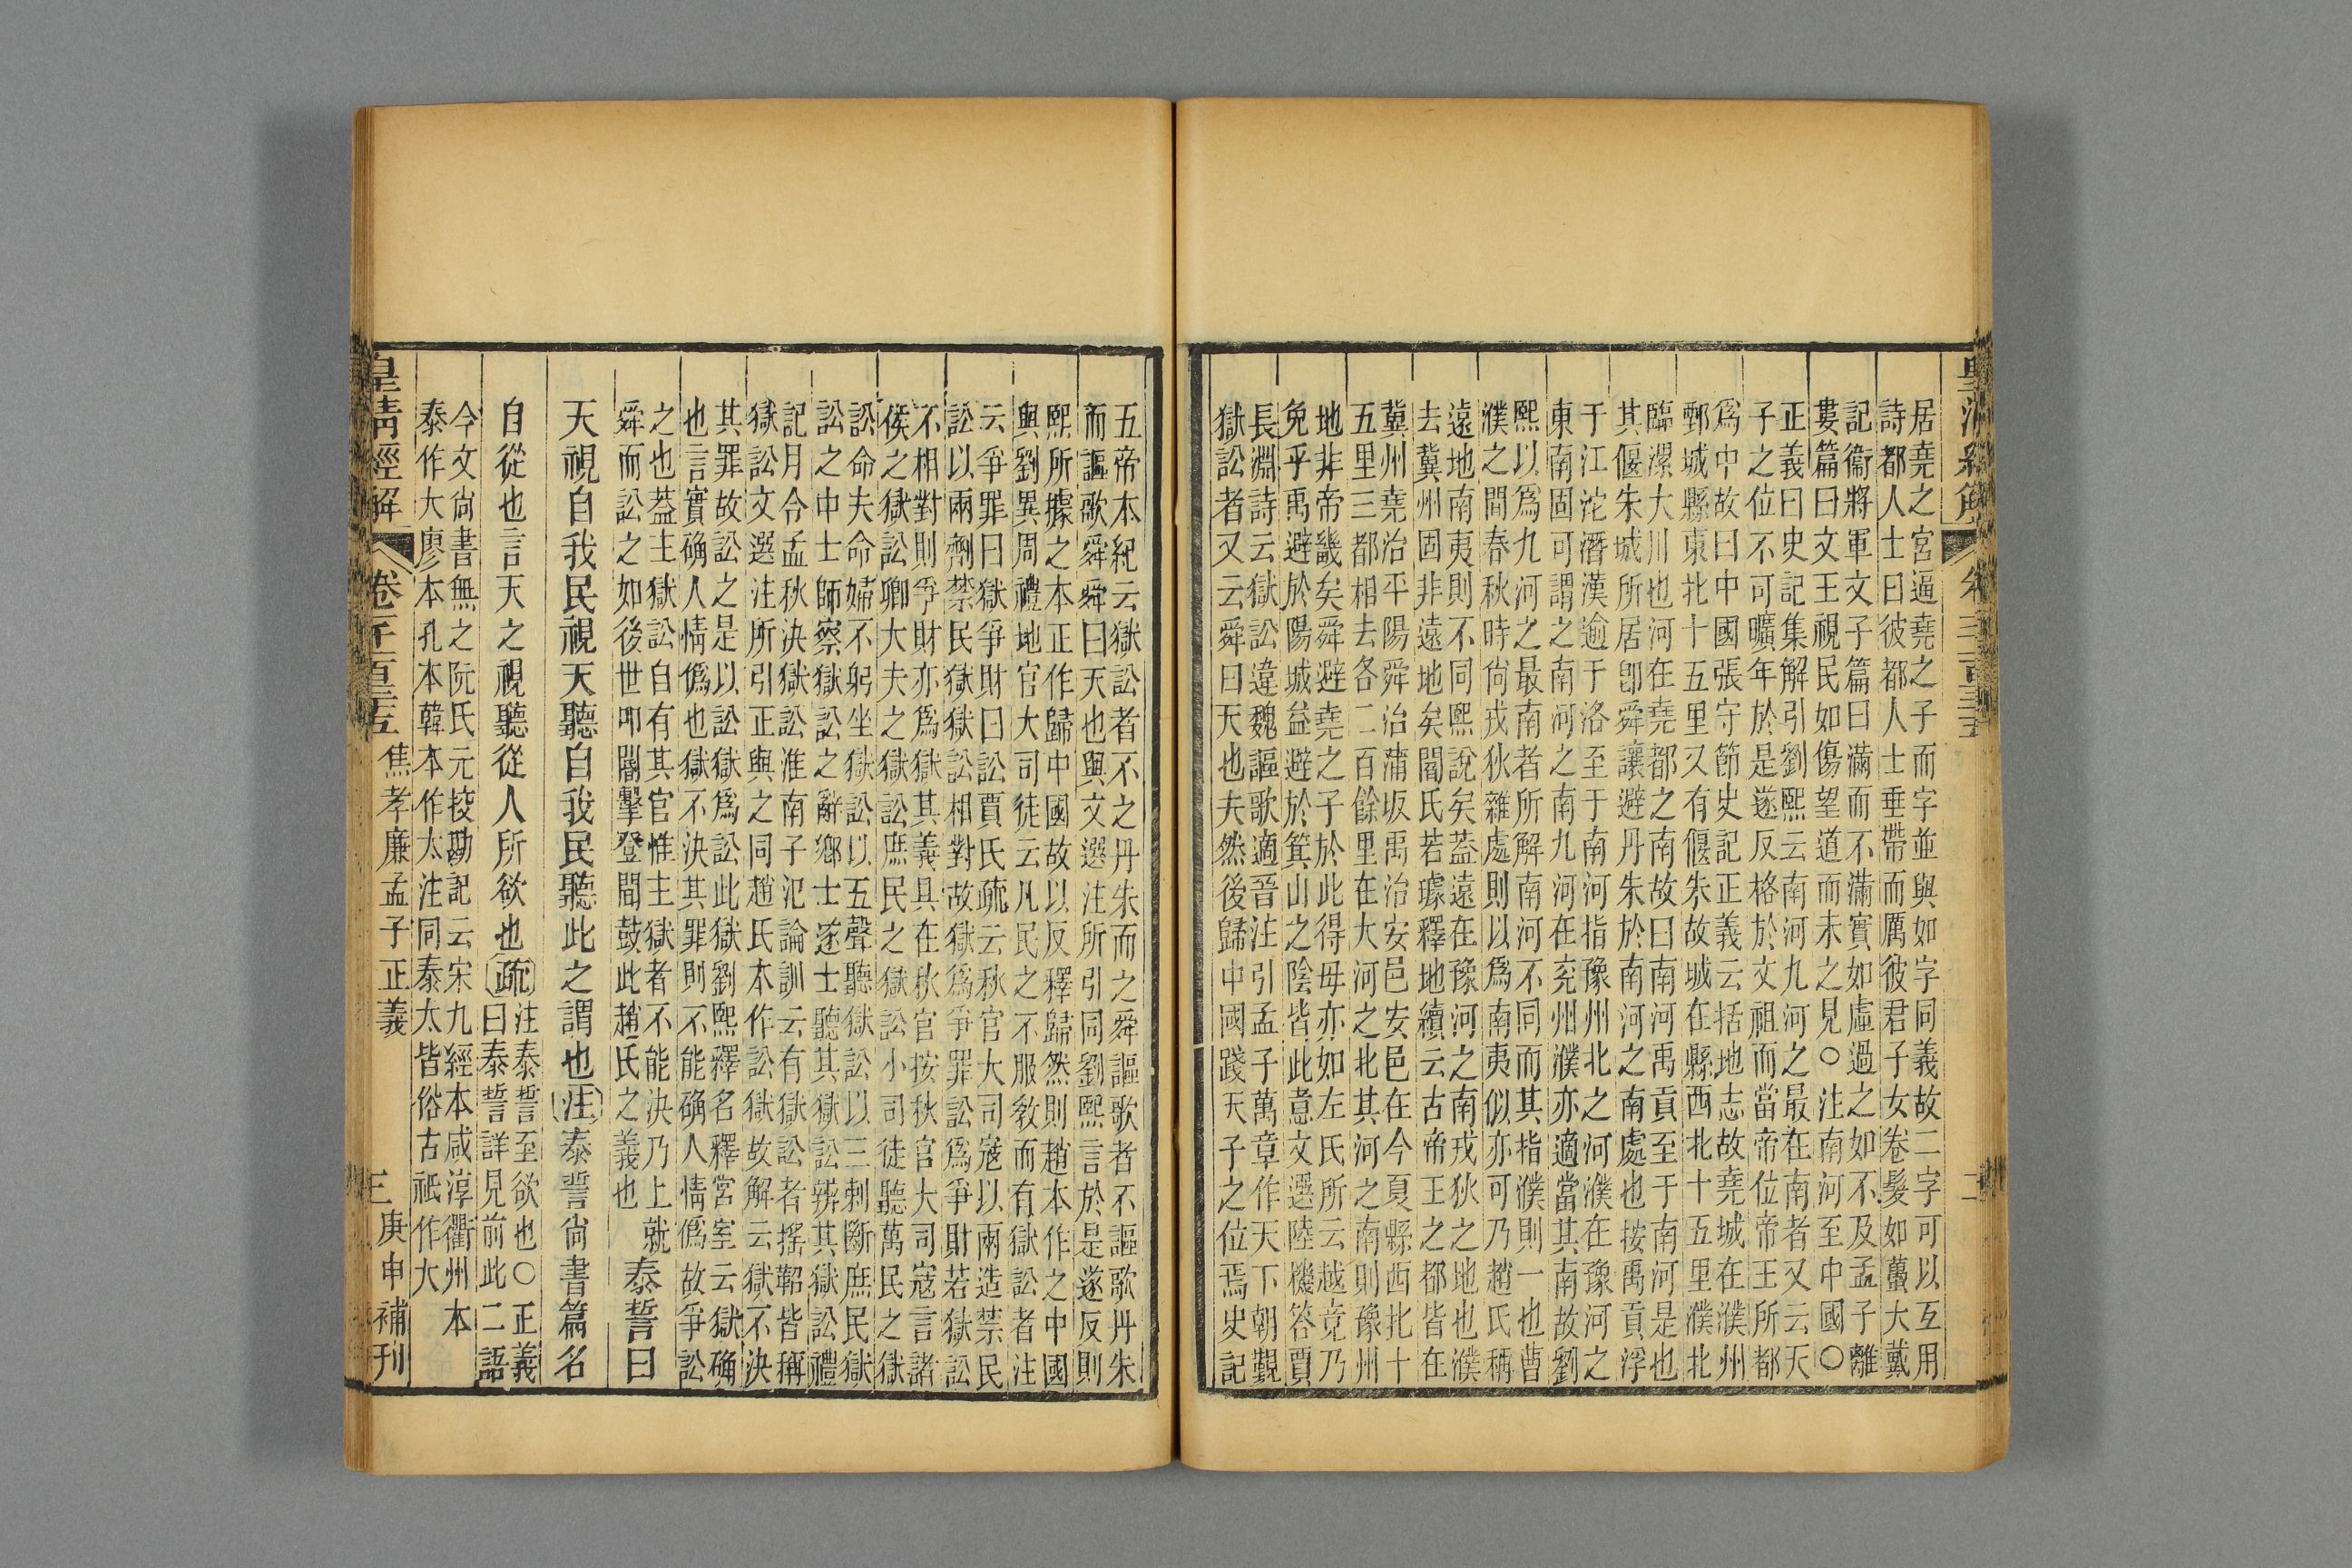 居堯之宮逼堯之子而字並與如字同義故二字可以互用
詩都人士曰彼都人士垂帶而厲彼君子女卷髮如蠆大戴
記衞將軍文子篇曰滿而不滿實如虛過之如不及孟子離
婁篇曰文王視民如傷望道而未之見○注南河至中國○
正義曰史記集解引劉熙云南河九河之最在南者又云天
子之位不可曠年於是遂反格於文祖而當帝位帝王所都
爲中故曰中國張守節史記正義云括地志故堯城在濮州
鄄城縣東北十五里又有偃朱故城在縣西北十五里濮北
臨漯大川也河在堯都之南故曰南河禹貢至于南河是也
其偃朱城所居卽舜讓避丹朱於南河之南處也按禹貢浮
于江沱潛漢逾于洛至于南河指豫州北之河濮在豫河之
東南固可謂之南河之南九河在兖州濮亦適當其南故劉
熙以爲九河之最南者所解南河不同而其指濮則一也曹
濮之間春秋時尙戎狄雜處則以爲南夷似亦可乃趙氏稱
遠地南夷則不同熙說矣蓋遠在豫河之南戎狄之地也濮
去冀州固非遠地矣閻氏若璩釋地續云古帝王之都皆在
冀州堯治平陽舜治蒲坂禹治安邑安邑在今夏縣西北十
五里三都相去各二百餘里在大河之北其河之南則豫州
地非帝畿矣舜避堯之子於此得毋亦如左氏所云越竞乃
免乎禹避於陽城益避於箕山之陰皆此意文選陸機答賈
長淵詩云獄訟違魏謳歌適晉注引孟子萬章作天下朝覲
獄訟者又云舜曰天也夫然後歸中國踐天子之位焉史記
五帝本紀云獄訟者不之丹朱而之舜謳歌者不謳歌丹朱
而謳歌舜舜曰天也與文選注所引同劉熙言於是遂反則
熙所據之本正作歸中國故以反釋歸然則趙本作之中國
與劉異周禮地官大司徒云凡民之不服教而有獄訟者注
云爭罪曰獄爭財曰訟賈氏疏云秋官大司寇以兩造禁民
訟以兩劑禁民獄獄訟相對故獄爲爭罪訟爲爭財若獄訟
不相對則爭財亦爲獄其義具在秋官按秋官大司寇言諸
侯之獄訟卿大夫之獄訟庶民之獄訟小司徒聽萬民之獄
訟命夫命婦不躬坐獄訟以五聲聽獄訟以三刺斷庶民獄
訟之中士師察獄訟之辭鄉士遂士聽其獄訟辨其獄訟禮
記月令孟秋決獄訟淮南子氾論訓云有獄訟者搖鞀皆稱
獄訟文選注所引正與之同趙氏本作訟獄故解云獄不決
其罪故訟之是以訟獄爲訟此獄劉熙釋名釋宮室云獄确
也言實确人情僞也獄不決其罪則不能确人情僞故爭訟
之也蓋主獄訟自有其官惟主獄者不能決乃上就
舜而訟之如後世叩閽擊登聞鼓此趙氏之義也
泰誓曰
天視自我民視天聽自我民聽此之謂也注泰誓尙書篇名
自從也言天之視聽從人所欲也疏注泰誓至欲也○正義
曰泰誓詳見前此二語
今文尙書無之阮氏元挍勘記云宋九經本咸淳衢州本
泰作大廖本孔本韓本作太注同泰太皆俗古祇作大
皇淸經解 卷千百三十五 焦孝廉孟子正義 三 庚申補刊